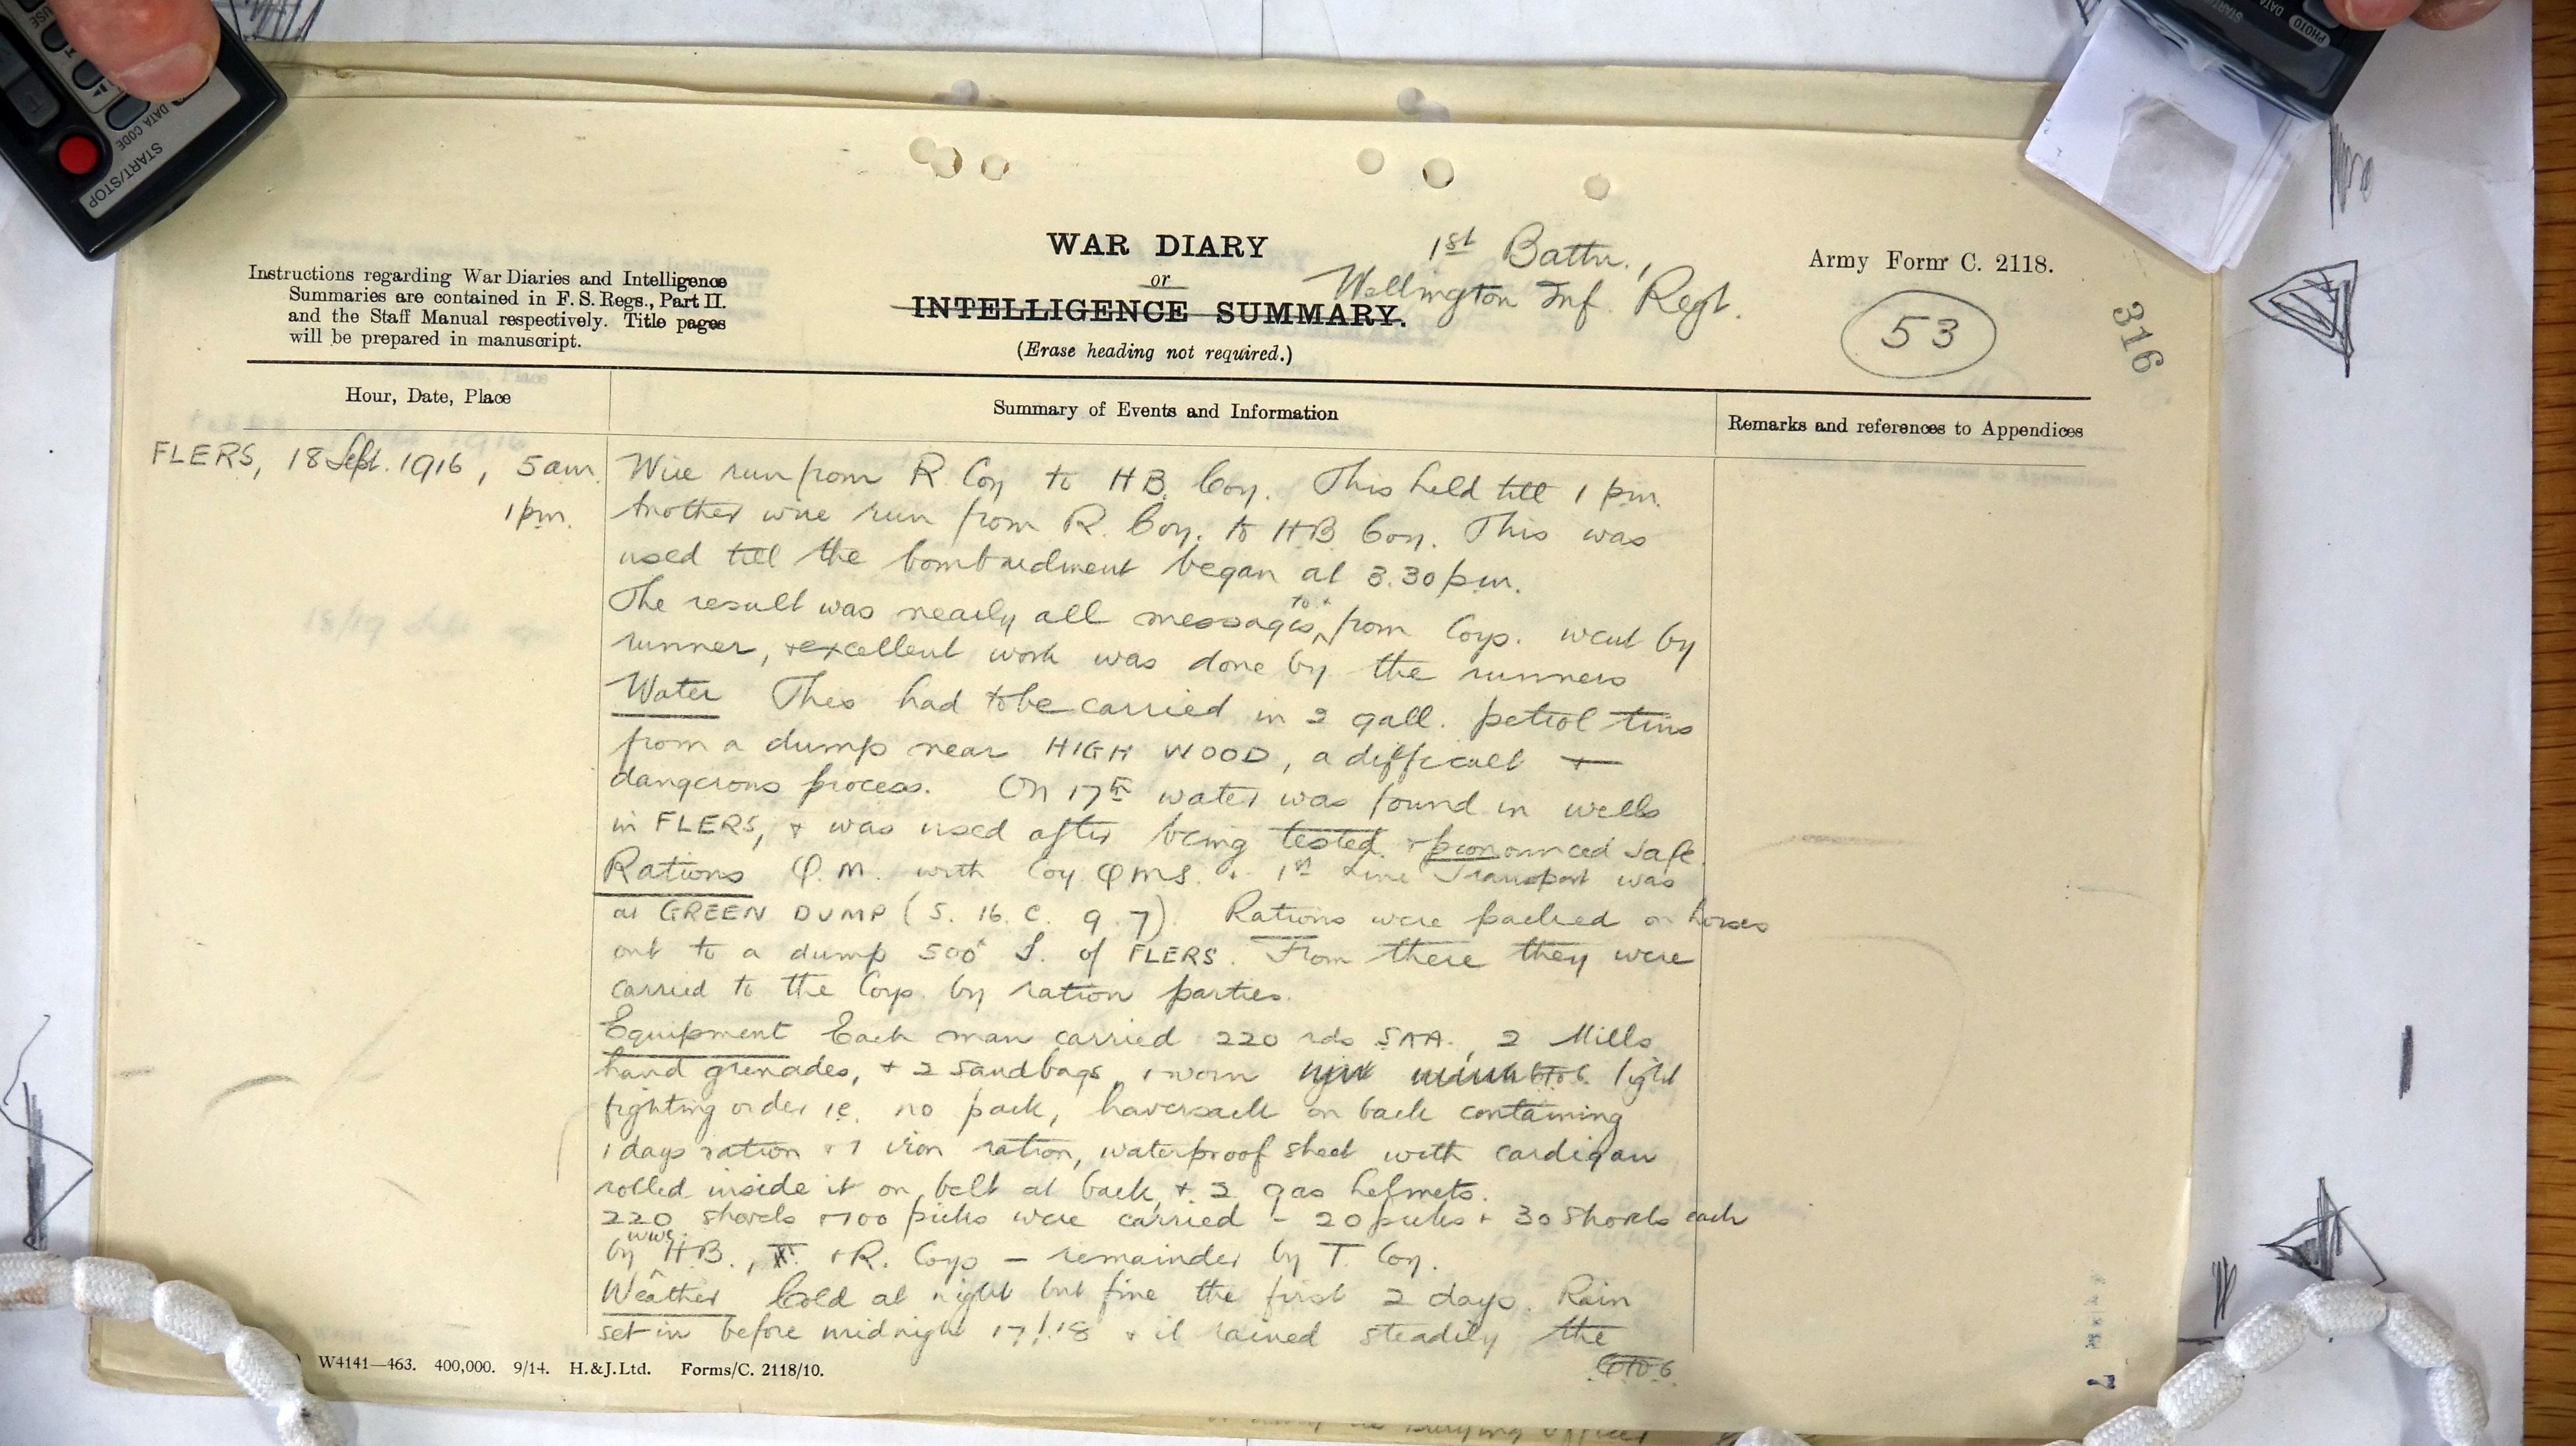 WAR DIARY
or
INTELLIGENCE SUMMARY.
(Erase heading not required.)
1st Battn.,
Wellington Inf. Regt.
Army Form C. 2118.
53
316
Instructions regarding War Diaries and Intelligence
Summaries are contained in F. S. Regs., Part II.
and the Staff Manual respectively. Title pages
will be prepared in manuscript.
Hour, Date, Place
Summary of Events and Information
Remarks and references to Appendices
FLERS, 18 Sept. 1916, 5am. Wire run from R Coy to HB. Coy. This held till 1 pm.
1pm. Another wire run from R. Coy. to H.B. Coy. This was
used till the bombardment began at 3.30 pm.
The result was nearly all messages to & from Coys. went by
runner, & excellent work was done by the runners
Water This had to be carried in 2 gall. petrol tins
from a dump near HIGH WOOD, a difficult &
dangerous process. On 17th water was found in wells
in FLERS, & was used after being tested & pronounced safe.
Rations Q.M. with Coy QMS. & 1st Line Transport was
at GREEN DUMP (S. 16. c. 9. 7). Rations were packed on horses
out to a dump 500x S. of FLERS. From there they were
carried to the Coys. by ration parties.
Equipment Each man carried 220 rds SAA., 2 Mills
hand grenades, & 2 sandbags, & worn light
fighting order ie. no pack, haversack on back containing
1 days ration & 1 iron ration, waterproof sheet with cardigan
rolled inside it on belt at back, & 2 gas helmets.
220 shovels & 100 picks were carried - 20 picks & 30 shovels each
by WWC. H.B., & R. Coys — remainder by T. Coy.
Weather Cold at night but fine the first 2 days. Rain
set in before midnight 17/18 & it rained steadily the
W4141—463. 400,000. 9/14. H.&J.Ltd. Forms/C. 2118/10.
START/STOP
DATA CODE
PHOTO